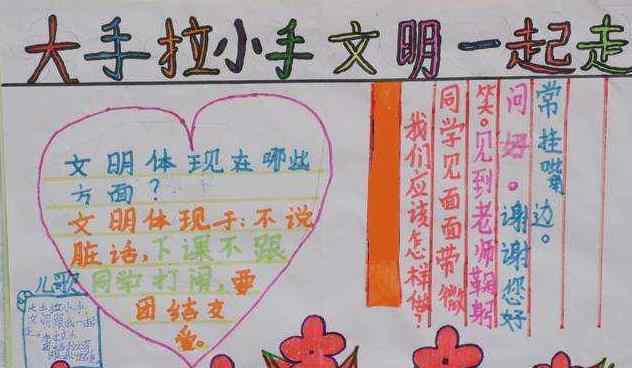 大手拉小手文明一起走
文明体现在哪些
方面？
文明体现于:不说
脏话,下课不跟
同学打闹,要
团结友
爱。
我们应该怎样做?
同学见面面带微
笑。见到老师鞠躬
问好。谢谢您好
常挂嘴边。
儿歌
大手拉小手,